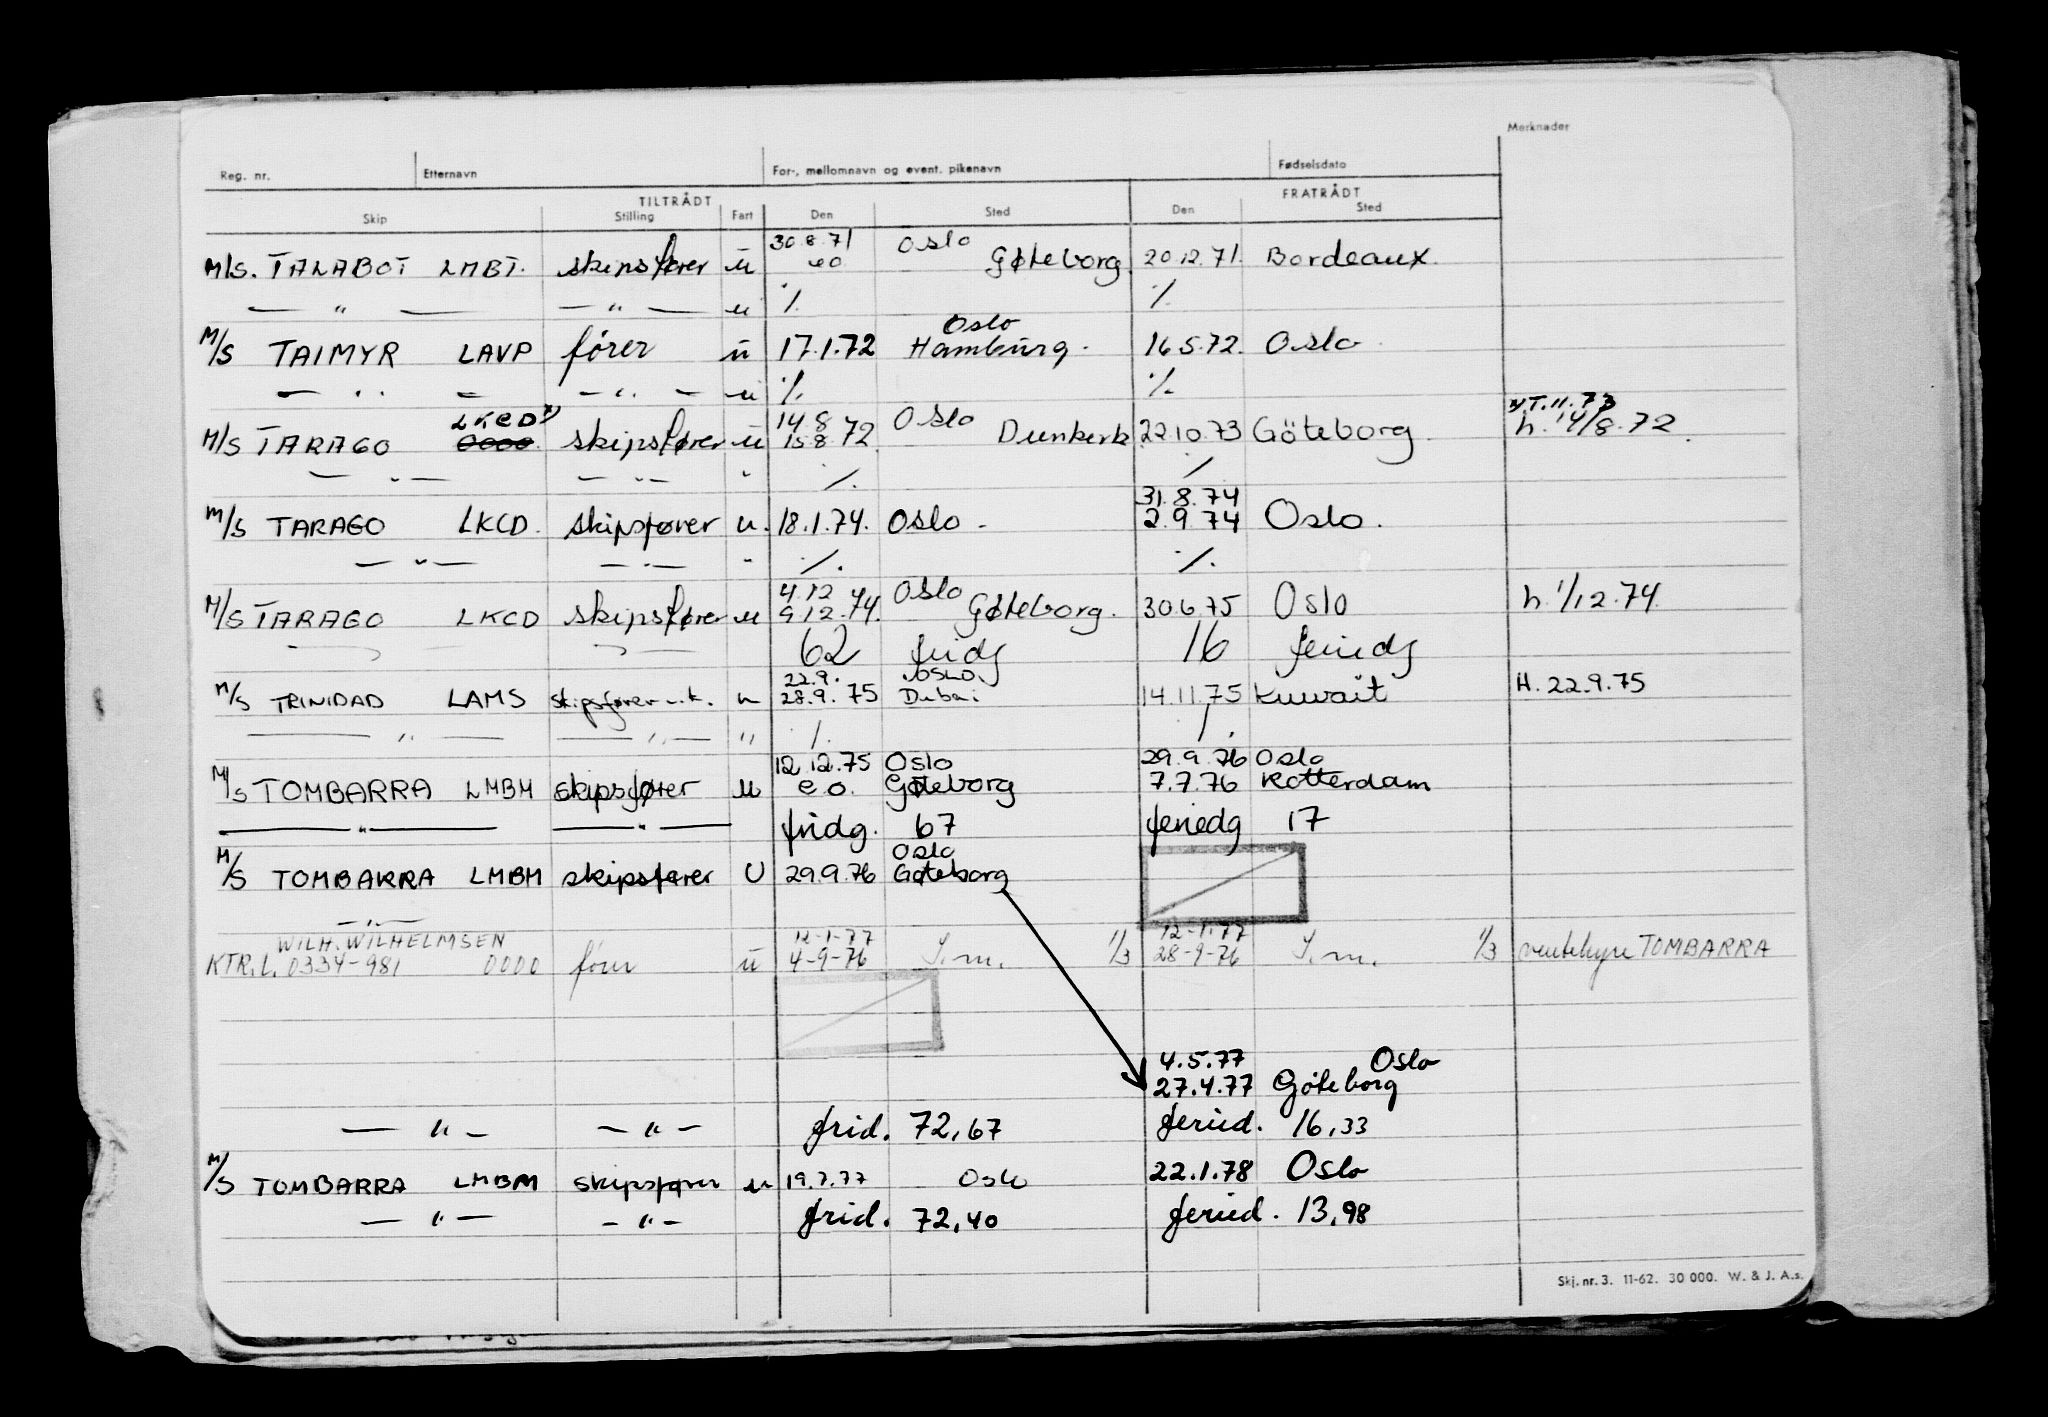 Merknader
Reg. nr. Etternavn For-, mellomnavn og event. pikenavn Fødselsdato
TILTRÅDT FRATRÅDT
Skip Stilling Fart Den Sted Den Sted
30.8.71 Oslo
M/S. TALABOT LMBT. skipsfører u eo Gøteborg. 20.12.71. Bordeaux.
— " — — " — u ·/. ·/.
Oslo
M/S TAIMYR LAVP fører u 17.1.72 Hamburg. 16.5.72. Oslo.
— " — — " — u ·/. ·/.
LKCD 14.8 Oslo 11.73
M/S TARAGO 0000. skipsfører u 15.8.72. Dunkerk 22.10.73 Göteborg. h. 14/8.72.
— " — — " — " ·/. ·/.
31.8.74
M/S TARAGO LKCD. skipsfører u. 18.1.74. Oslo - 2.9.74 Oslo.
— " — — " — " ·/. ·/.
4.12 Oslo
M/S TARAGO LKCD skipsfører u 9.12.74. Gøteborg. 30.6.75 Oslo h. 1/12.74.
62 fridg 16 feriedg
22.9. OSLO.
M/S TRINIDAD LAMS skipsfører u.k. u 28.9.75 Dubai 14.11.75 Kuwait H. 22.9.75
— " — — " — " ·/. ·/.
12.12.75 Oslo 29.9.76 Oslo
M/S TOMBARRA LMBM skipsfører u e.o. Gøteborg 7.7.76 Rotterdam
— " — — " — fridg. 67 feriedg 17
Oslo
M/S TOMBARRA LMBM skipsfører U 29.9.76 Gøteborg
— " —
WILH. WILHELMSEN 12-1-77 12-1-77
KTR.L. 0334-981 0000 fører u 4-9-76 S.m. 1/3 28-9-76 S.m. 1/3 ventehyre TOMBARRA
4.5.77 Oslo
27.4.77 Göteborg
— " — — " — frid. 72,67 feried. 16,33
M/S TOMBARRA LMBM skipsfører u 19.7.77 Oslo 22.1.78 Oslo
— " — — " — frid. 72,40 feried. 13,98
Skj. nr. 3. 11-62. 30 000. W. & J. A.s.